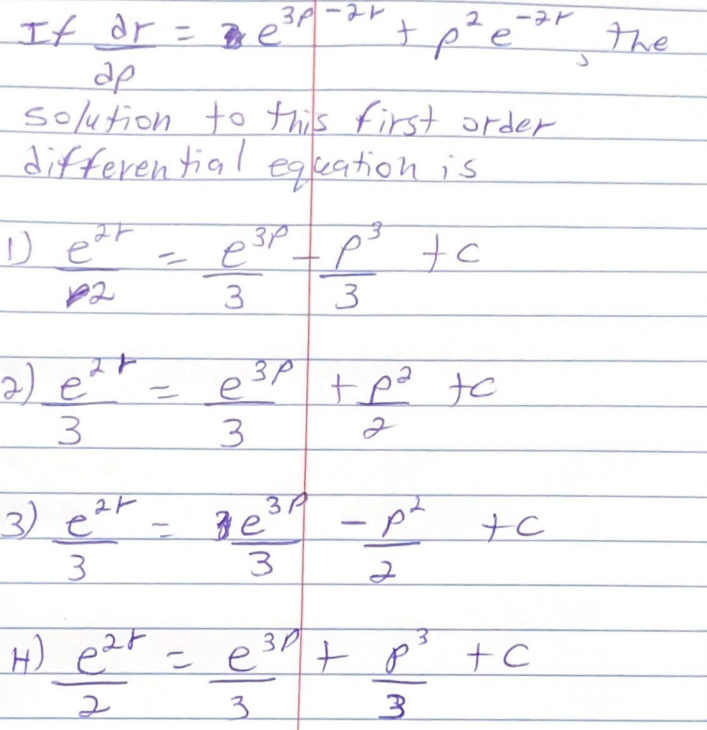 If dr/dρ = e^(3ρ-2r) + ρ^2 e^(-2r), the
solution to this first order
differential equation is
1) e^(2r)/2 = e^(3ρ)/3 - ρ^3/3 + c
2) e^(2r)/3 = e^(3ρ)/3 + ρ^2/2 + c
3) e^(2r)/3 = e^(3ρ)/3 - ρ^2/2 + c
4) e^(2r)/2 = e^(3ρ)/3 + ρ^3/3 + c